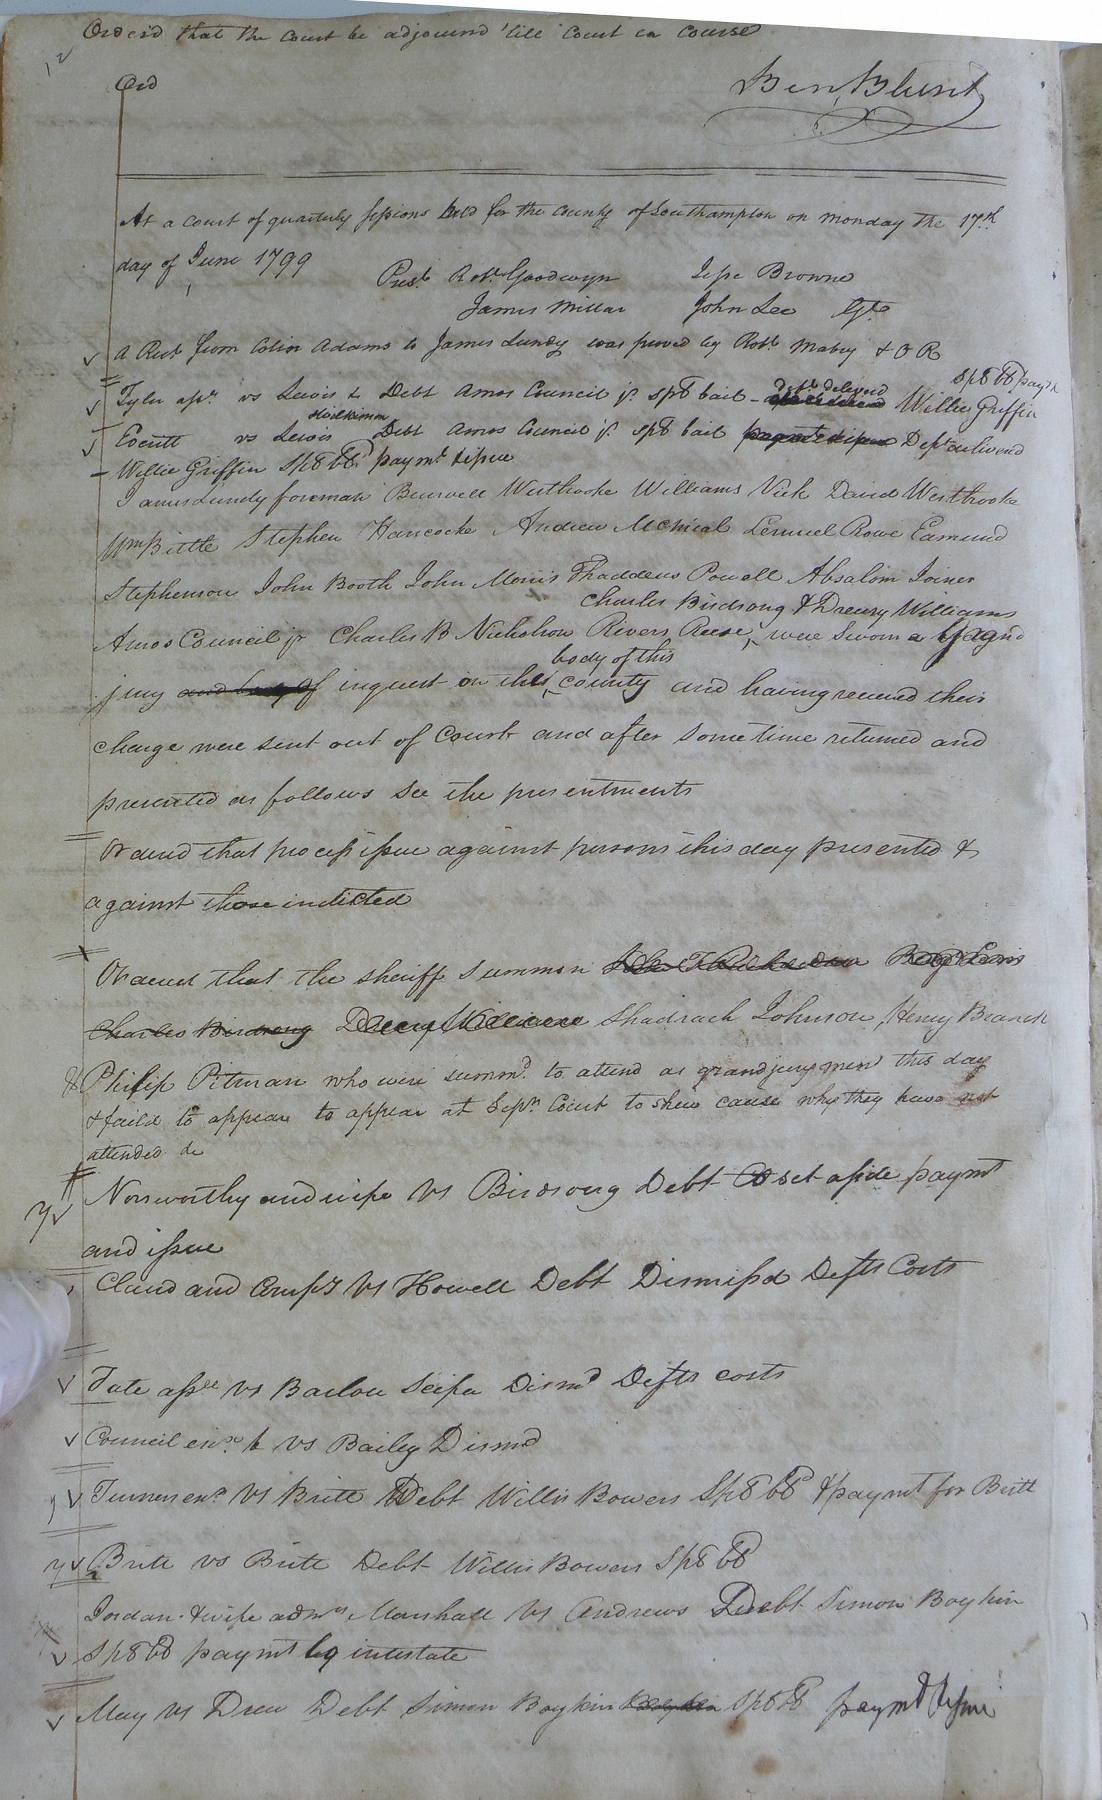 Orderd that the Court be adjournd 'till Court in Course
Ord
Ben, Blunt
At a Court of quarterly sessions held for the County of Southampton on monday the 17th
day of June 1799
Prest Robt Goodwyn Jesse Browne
James Millar John Lee Gts
A Rect from Colin Adams to James Lundy was proved by Robt Mabry & O R
spb bb paymt
Tyler assr vs Lewis & Debt Amos Council jr spb bail - deft delivered Willie Griffin
Holliman
vs Lewis Debt Amos Council jr spb bail paymt & issue Deft delivered
Willie Griffin Spb bb paymt & issue
James Lundy foreman Burwell Westbrooke Williams Vick David Westbrooke
Wm Bittle Stephen Hancocke Andrew McNical Lemuel Rowe Edmund
Stephenson John Booth John Morris Thaddeus Powell Absalom Joiner
Charles Birdsong & Drewry Williams
Amos Council jr Charles B Nicholson Rivers Reese, were sworn a Grand
body of this
jury and body of inquest on this county and having received their
charge were sent out of Court and after some time returned and
presented as follows see the presentments
Ordered that process issue against persons this day presented &
against those indicted
Ordered that the sheriff summon
Charles Birdsong Drewry Williams Shadrach Johnson, Henry Branch
& Philip Pitman who were summd. to attend as grandjurymen this day
& faild to appear to appear at Sepr Court to shew cause why they have not
attended &c
Norsworthy and wife vs Birdsong Debt CO set aside paymt
and issue
Claud and Compy vs Howell Debt Dismissd Defts Costs
Tate assee vs Barlow Scifa Dismd Defts costs
Council exr & vs Bailey Dismd
Turner exr vs Britt Debt Willis Bowers Spb bb & paymt for Britt
Britt vs Britt Debt Willis Bowers Spb bb
Jordan & wife admrs Marshall vs Andrews Debt Simon Boykin
Spb bb paymt by intestate
May vs Drew Debt Simon Boykin Boykin Spb bb paymt & issue